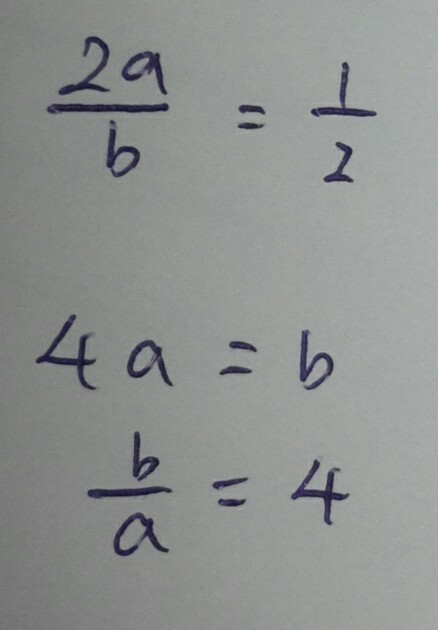 2a/b = 1/2
4a = b
b/a = 4